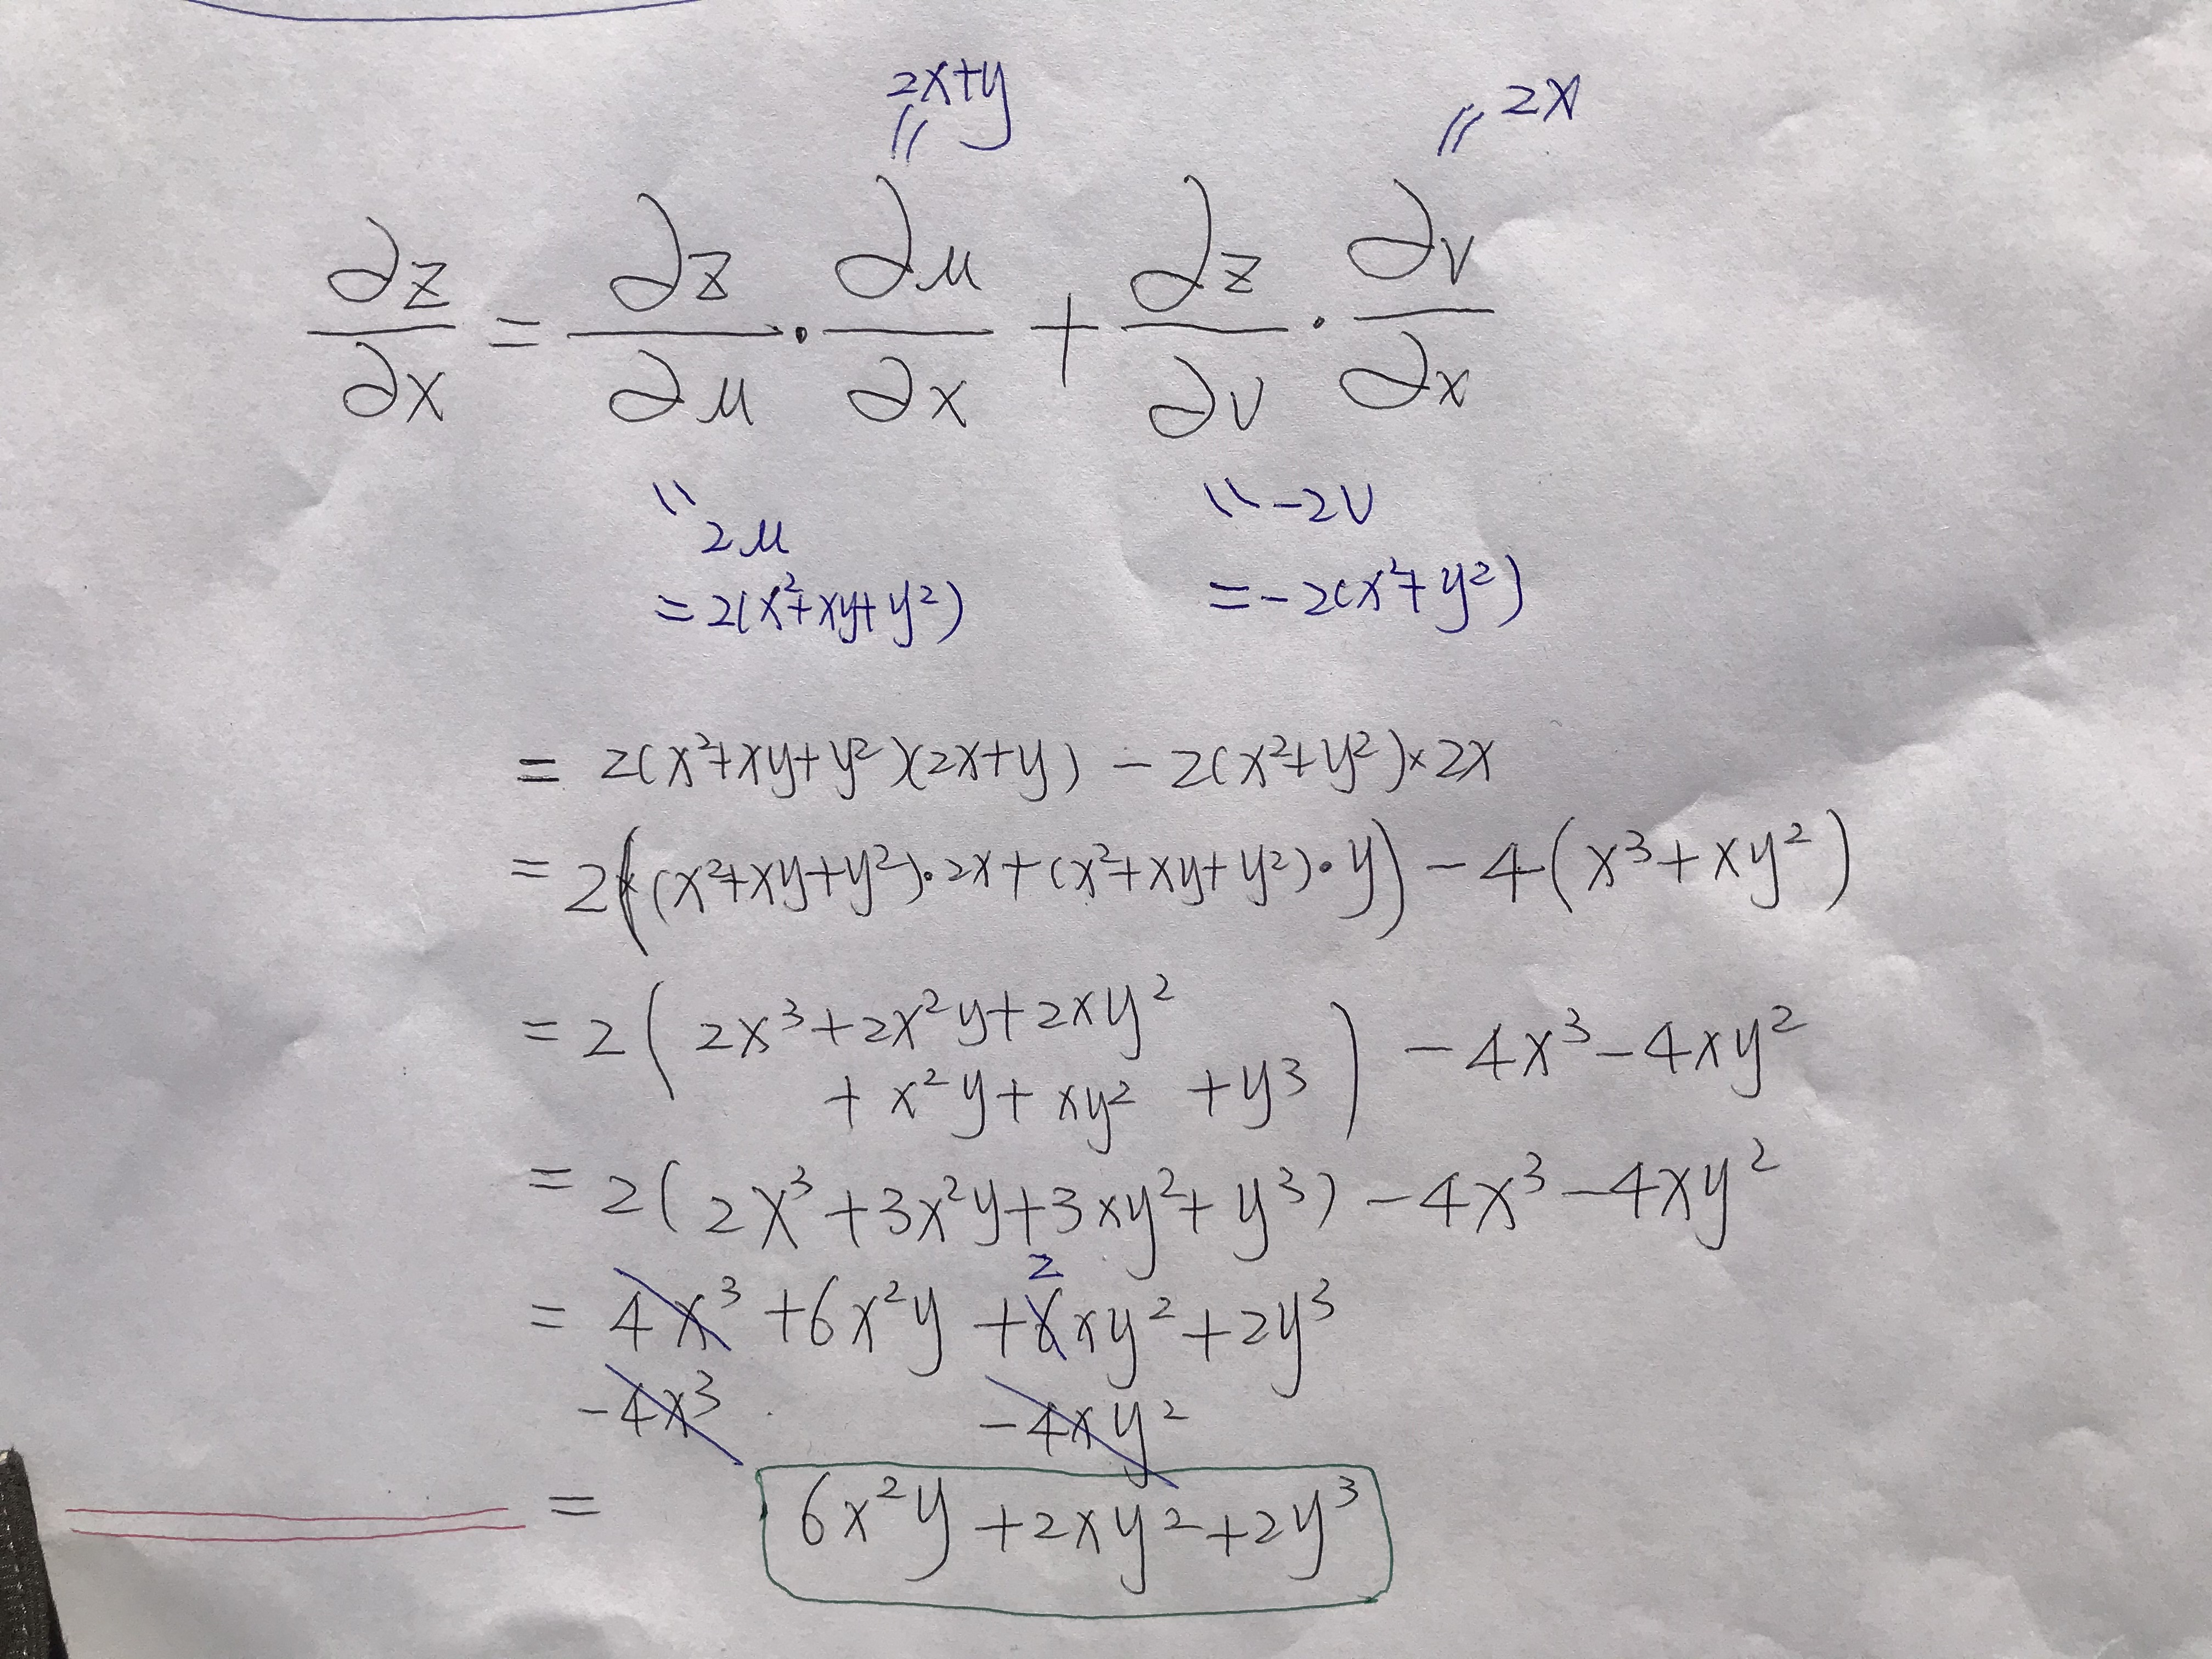 2x+y = 2x
∂z/∂x = ∂z/∂μ · ∂μ/∂x + ∂z/∂ν · ∂ν/∂x
= 2μ = -2ν
= 2(x²+xy+y²) = -2(x²+y²)
= 2(x²+xy+y²)(2x+y) - 2(x²+y²)×2x
= 2((x²+xy+y²)·2x+(x²+xy+y²)·y) - 4(x³+xy²)
= 2(2x³+2x²y+2xy²
+x²y+xy² +y³) - 4x³ - 4xy²
= 2(2x³+3x²y+3xy²+y³) - 4x³ - 4xy²
2
= 4x³+6x²y+6xy²+2y³
-4x³ -4xy²
= 6x²y+2xy²+2y³